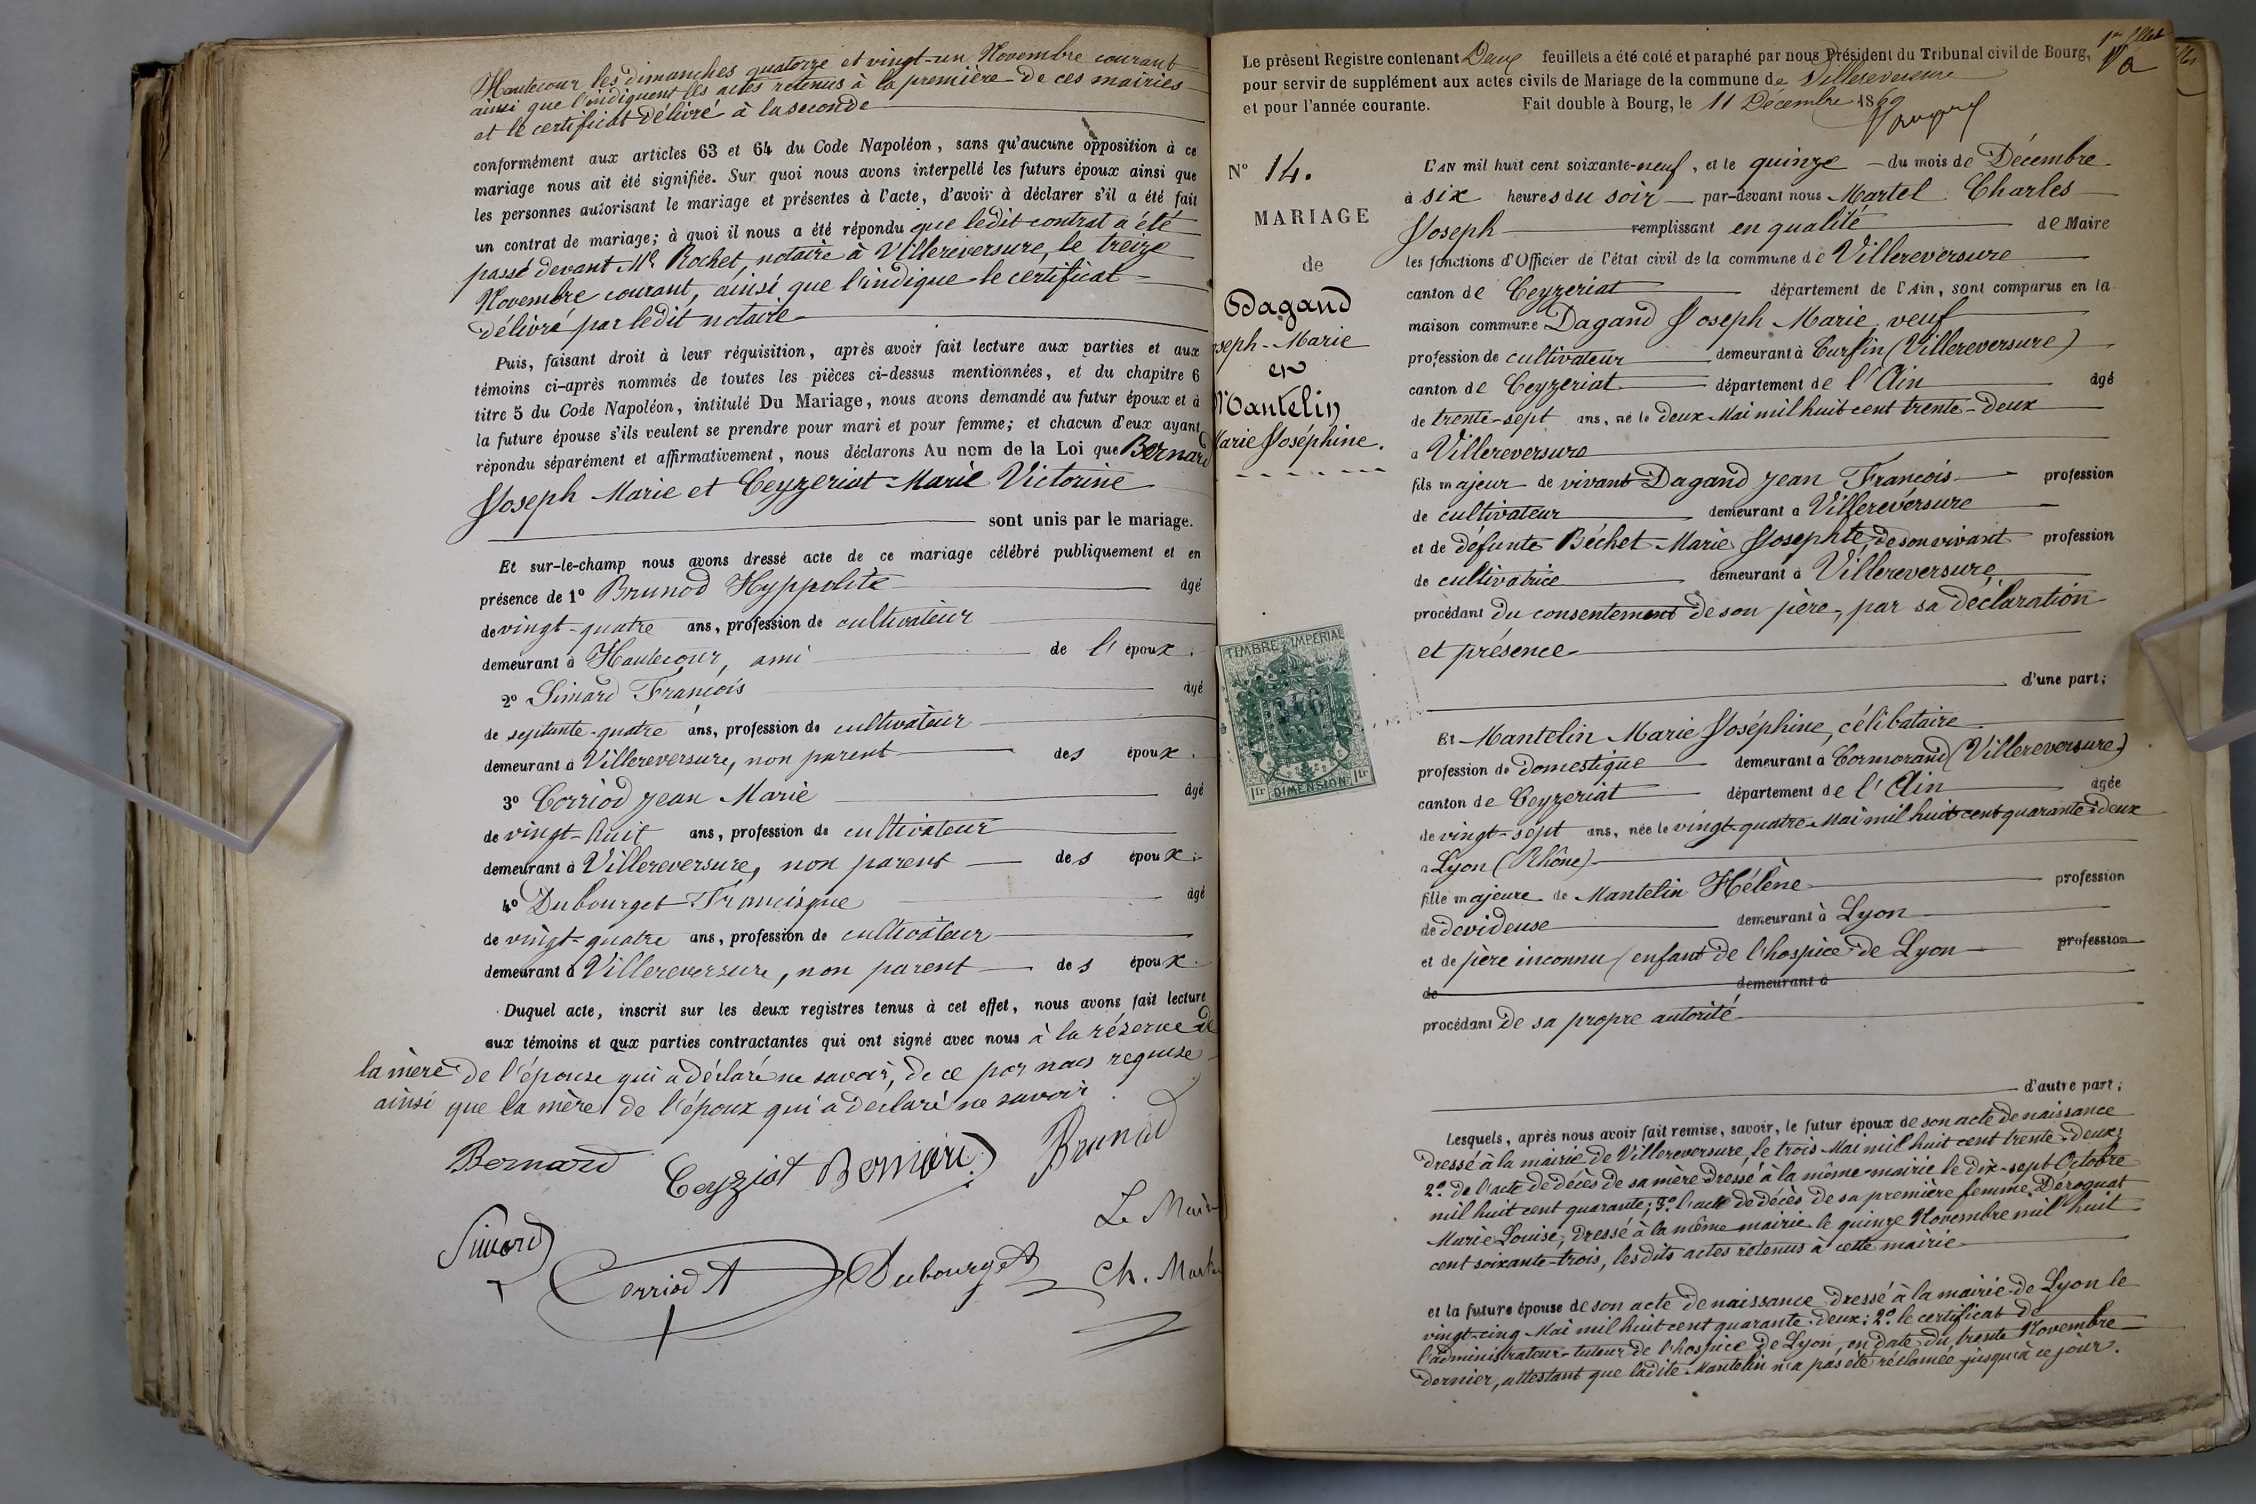 Hautecour les dimanches quatorze et vingt-un Novembre courant
ainsi que l'indiquent les actes retenus à la première de ces mairies
et le certificat délivré à la seconde
conformément aux articles 63 et 64 du Code Napoléon, sans qu'aucune opposition à ce
mariage nous ait été signifiée. Sur quoi nous avons interpellé les futurs époux ainsi que
les personnes autorisant le mariage et présentes à l'acte, d'avoir à déclarer s'il a été fait
un contrat de mariage; à quoi il nous a été répondu que ledit contrat a été
passé devant Me Rochet, notaire à Villereversure, le treize
Novembre courant, ainsi que l'indique le certificat
délivré par ledit notaire
Puis, faisant droit à leur réquisition, après avoir fait lecture aux parties et aux
témoins ci-après nommés de toutes les pièces ci-dessus mentionnées, et du chapitre 6
titre 5 du Code Napoléon, intitulé Du Mariage, nous avons demandé au futur époux et à
la future épouse s'ils veulent se prendre pour mari et pour femme; et chacun d'eux ayant
répondu séparément et affirmativement, nous déclarons Au nom de la Loi que Bernard
Joseph Marie et Ceyzeriat Marie Victorine
sont unis par le mariage.
Et sur-le-champ nous avons dressé acte de ce mariage célébré publiquement et en
présence de 1º Brunod Hyppolite âgé
de vingt-quatre ans, profession de cultivateur
demeurant à Hautecour, ami de l'époux.
2º Simard François âgé
de septante-quatre ans, profession de cultivateur
demeurant à Villereversure, non parent des époux.
3º Corriod Jean Marie âgé
de vingt-huit ans, profession de cultivateur
demeurant à Villereversure, non parent des époux;
4º Dubourget Francisque âgé
de vingt-quatre ans, profession de cultivateur
demeurant à Villereversure, non parent des époux.
Duquel acte, inscrit sur les deux registres tenus à cet effet, nous avons fait lecture
aux témoins et aux parties contractantes qui ont signé avec nous à la réserve de
la mère de l'épouse qui a déclaré ne savoir, de ce par nous requise
ainsi que la mère de l'époux qui a déclaré ne savoir.
Bernard Ceyziat Bernard Brunod
Simard Corriod Dubourget
Le Maire
Ch. Martel
1er fllet
Le présent Registre contenant Deux feuillets a été coté et paraphé par nous Président du Tribunal civil de Bourg,
pour servir de supplément aux actes civils de Mariage de la commune de Villereversure
et pour l'année courante. Fait double à Bourg, le 11 Décembre 1869
Nº 14.
MARIAGE
de
Dagand
seph-Marie
et
Mantelin
Marie Joséphine.
TIMBRE IMPÉRIAL
1fr DIMENSION 1fr
L'AN mil huit cent soixante-neuf, et le quinze du mois de Décembre
à six heures du soir par-devant nous Martel Charles
Joseph remplissant en qualité de Maire
les fonctions d'Officier de l'état civil de la commune de Villereversure
canton de Ceyzeriat département de l'Ain, sont comparus en la
maison commune Dagand Joseph Marie, veuf
profession de cultivateur demeurant à Curfin (Villereversure)
canton de Ceyzeriat département de l'Ain âgé
de trente-sept ans, né le deux Mai mil huit cent trente-deux
à Villereversure
fils majeur de vivant Dagand Jean François profession
de cultivateur demeurant à Villereversure
et de défunte Béchet Marie Josephte, de son vivant profession
de cultivatrice demeurant à Villereversure
procédant du consentement de son père, par sa déclaration
et présence
d'une part;
Et Mantelin Marie Joséphine, célibataire
profession de domestique demeurant à Cormorand (Villereversure)
canton de Ceyzeriat département de l'Ain âgée
de vingt-sept ans, née le vingt-quatre Mai mil huit cent quarante-deux
à Lyon (Rhône)
fille majeure de Mantelin Hélène profession
de devideuse demeurant à Lyon
et de père inconnu (enfant de l'hospice de Lyon profession
de demeurant à
procédant de sa propre autorité
d'autre part;
Lesquels, après nous avoir fait remise, savoir, le futur époux de son acte de naissance
dressé à la mairie de Villereversure, le trois Mai mil huit cent trente-deux;
2º. de l'acte de décès de sa mère dressé à la même mairie le dix-sept Octobre
mil huit cent quarante; 3º. l'acte de décès de sa première femme, Derognat
Marie Louise, dressé à la même mairie le quinze Novembre mil huit
cent soixante-trois, les dits actes retenus à cette mairie
et la future épouse de son acte de naissance dressé à la mairie de Lyon le
vingt-cinq Mai mil huit cent quarante-deux; 2º. le certificat de
l'administrateur-tuteur de l'hospice de Lyon, en date du trente Novembre
dernier, attestant que ladite Mantelin n'a pas été réclamée jusqu'à ce jour.